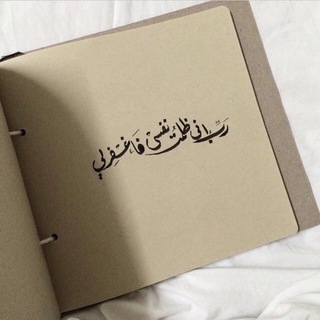 رَبِّ اني ظلمت نفسي فَاغْفِرلي